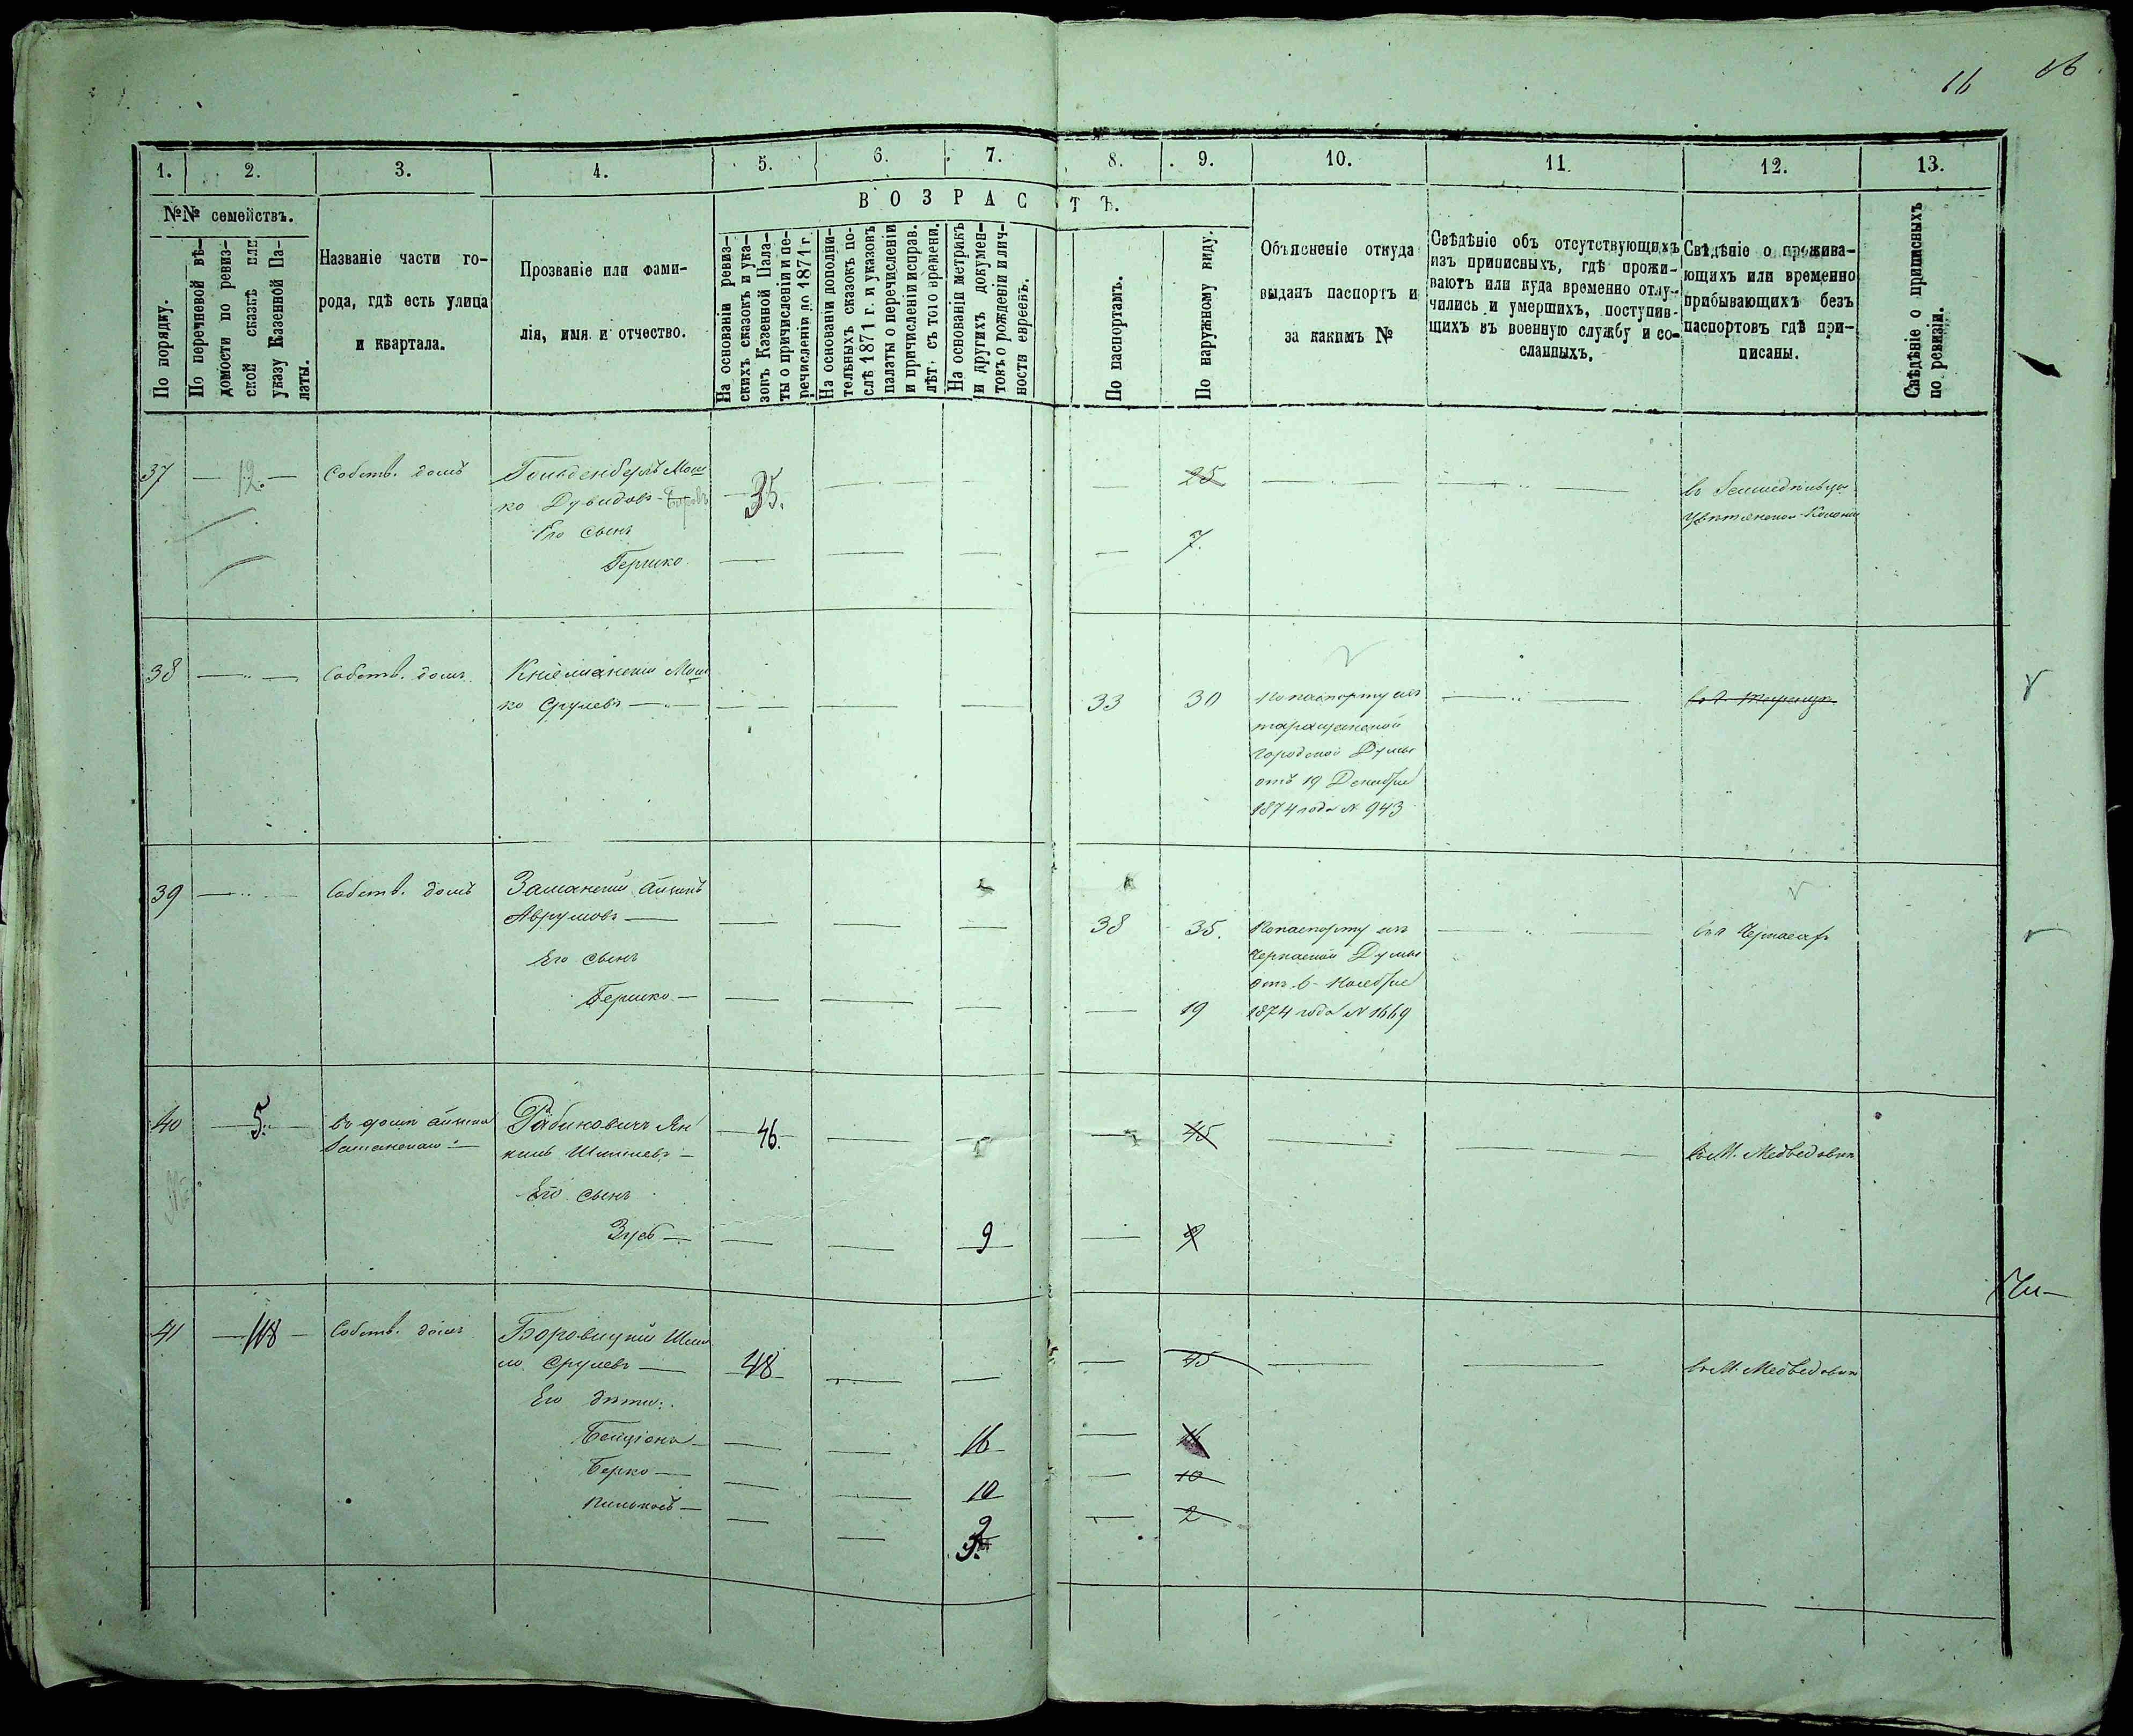 16
1. 2. 3. 4. 5. 6. 7. 8. 9. 10. 11. 12. 13.
№№ семействъ.
По порядку.
По перечневой вѣ-
домости по ревиз-
ской сказкѣ или
указу Казенной Па-
латы.
Названіе части го-
рода, гдѣ есть улица
и квартала.
Прозваніе или фами-
лія, имя и отчество.
ВОЗРАСТЪ.
На основаніи ревиз-
скихъ сказокъ и ука-
зовъ Казенной Пала-
ты о причисленіи и пе-
речисленіи до 1871 г.
На основаніи дополни-
тельныхъ сказокъ по-
слѣ 1871 г. и указовъ
палаты о перечисленіи
и причисленіи исправ.
лѣт. съ того времени.
На основаніи метрикъ
и другихъ докумен-
товъ о рожденіи и лич-
ности евреевъ.
По паспортамъ.
По наружному виду.
Объясненіе откуда
выданъ паспортъ и
за какимъ №
Свѣдѣніе объ отсутствующихъ
изъ приписныхъ, гдѣ прожи-
ваютъ или куда временно отлу-
чились и умершихъ, поступив-
щихъ въ военную службу и со-
сланныхъ.
Свѣдѣніе о прожива-
ющихъ или временно
прибывающихъ безъ
паспортовъ гдѣ при-
писаны.
Свѣдѣніе о приписныхъ
по ревизіи.
37 — 12. — Собств. домъ Гольденбергъ Мош
ко Дувидовъ 35. 25
Его сынъ 7.
Гершко
38 Собств. домъ
ко Срулевъ 33 30 По паспорту изъ
таращанской
городской Думы
отъ 19 Декабря
1874 года № 943
39 Собств. домъ Заманскій
Аврумовъ 38 35. По паспорту изъ
Черкаской Думы
Его сынъ отъ 6 Ноября
Бершко — 19 1874 года № 1669
40 — 5. — въ домѣ Рабиновичъ Ян
Заманскаго кель — 46. 45 въ М. Медведовкѣ
Его сынъ
9 9
41 — 118 — Собств. домъ Боровицкій Шми
ло Срулевъ — 48 45 въ М. Медведовкѣ
Его дѣти:
Бенціонъ — 16
Берко — 10 10
Пинькасъ — 3. 2